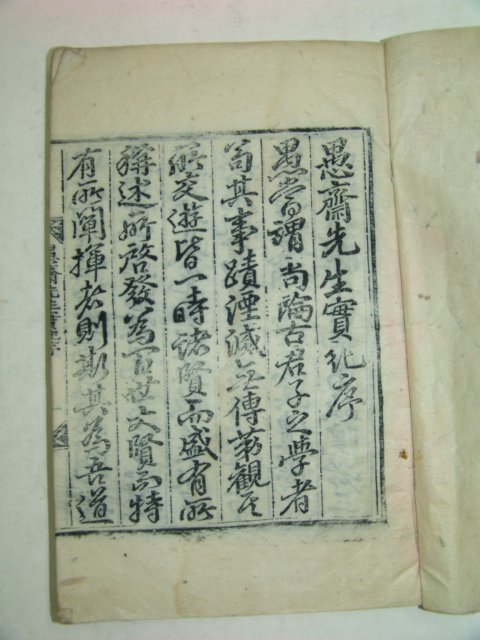 愚齋先生實紀序
愚嘗謂尚論古君子之學者
苟其事蹟湮滅無傳第觀其
所交遊皆一時諸賢而盛有所
稱述所啓發為百世大賢而特
有所闡揮者則斯其為吾道
愚齋先生實紀序